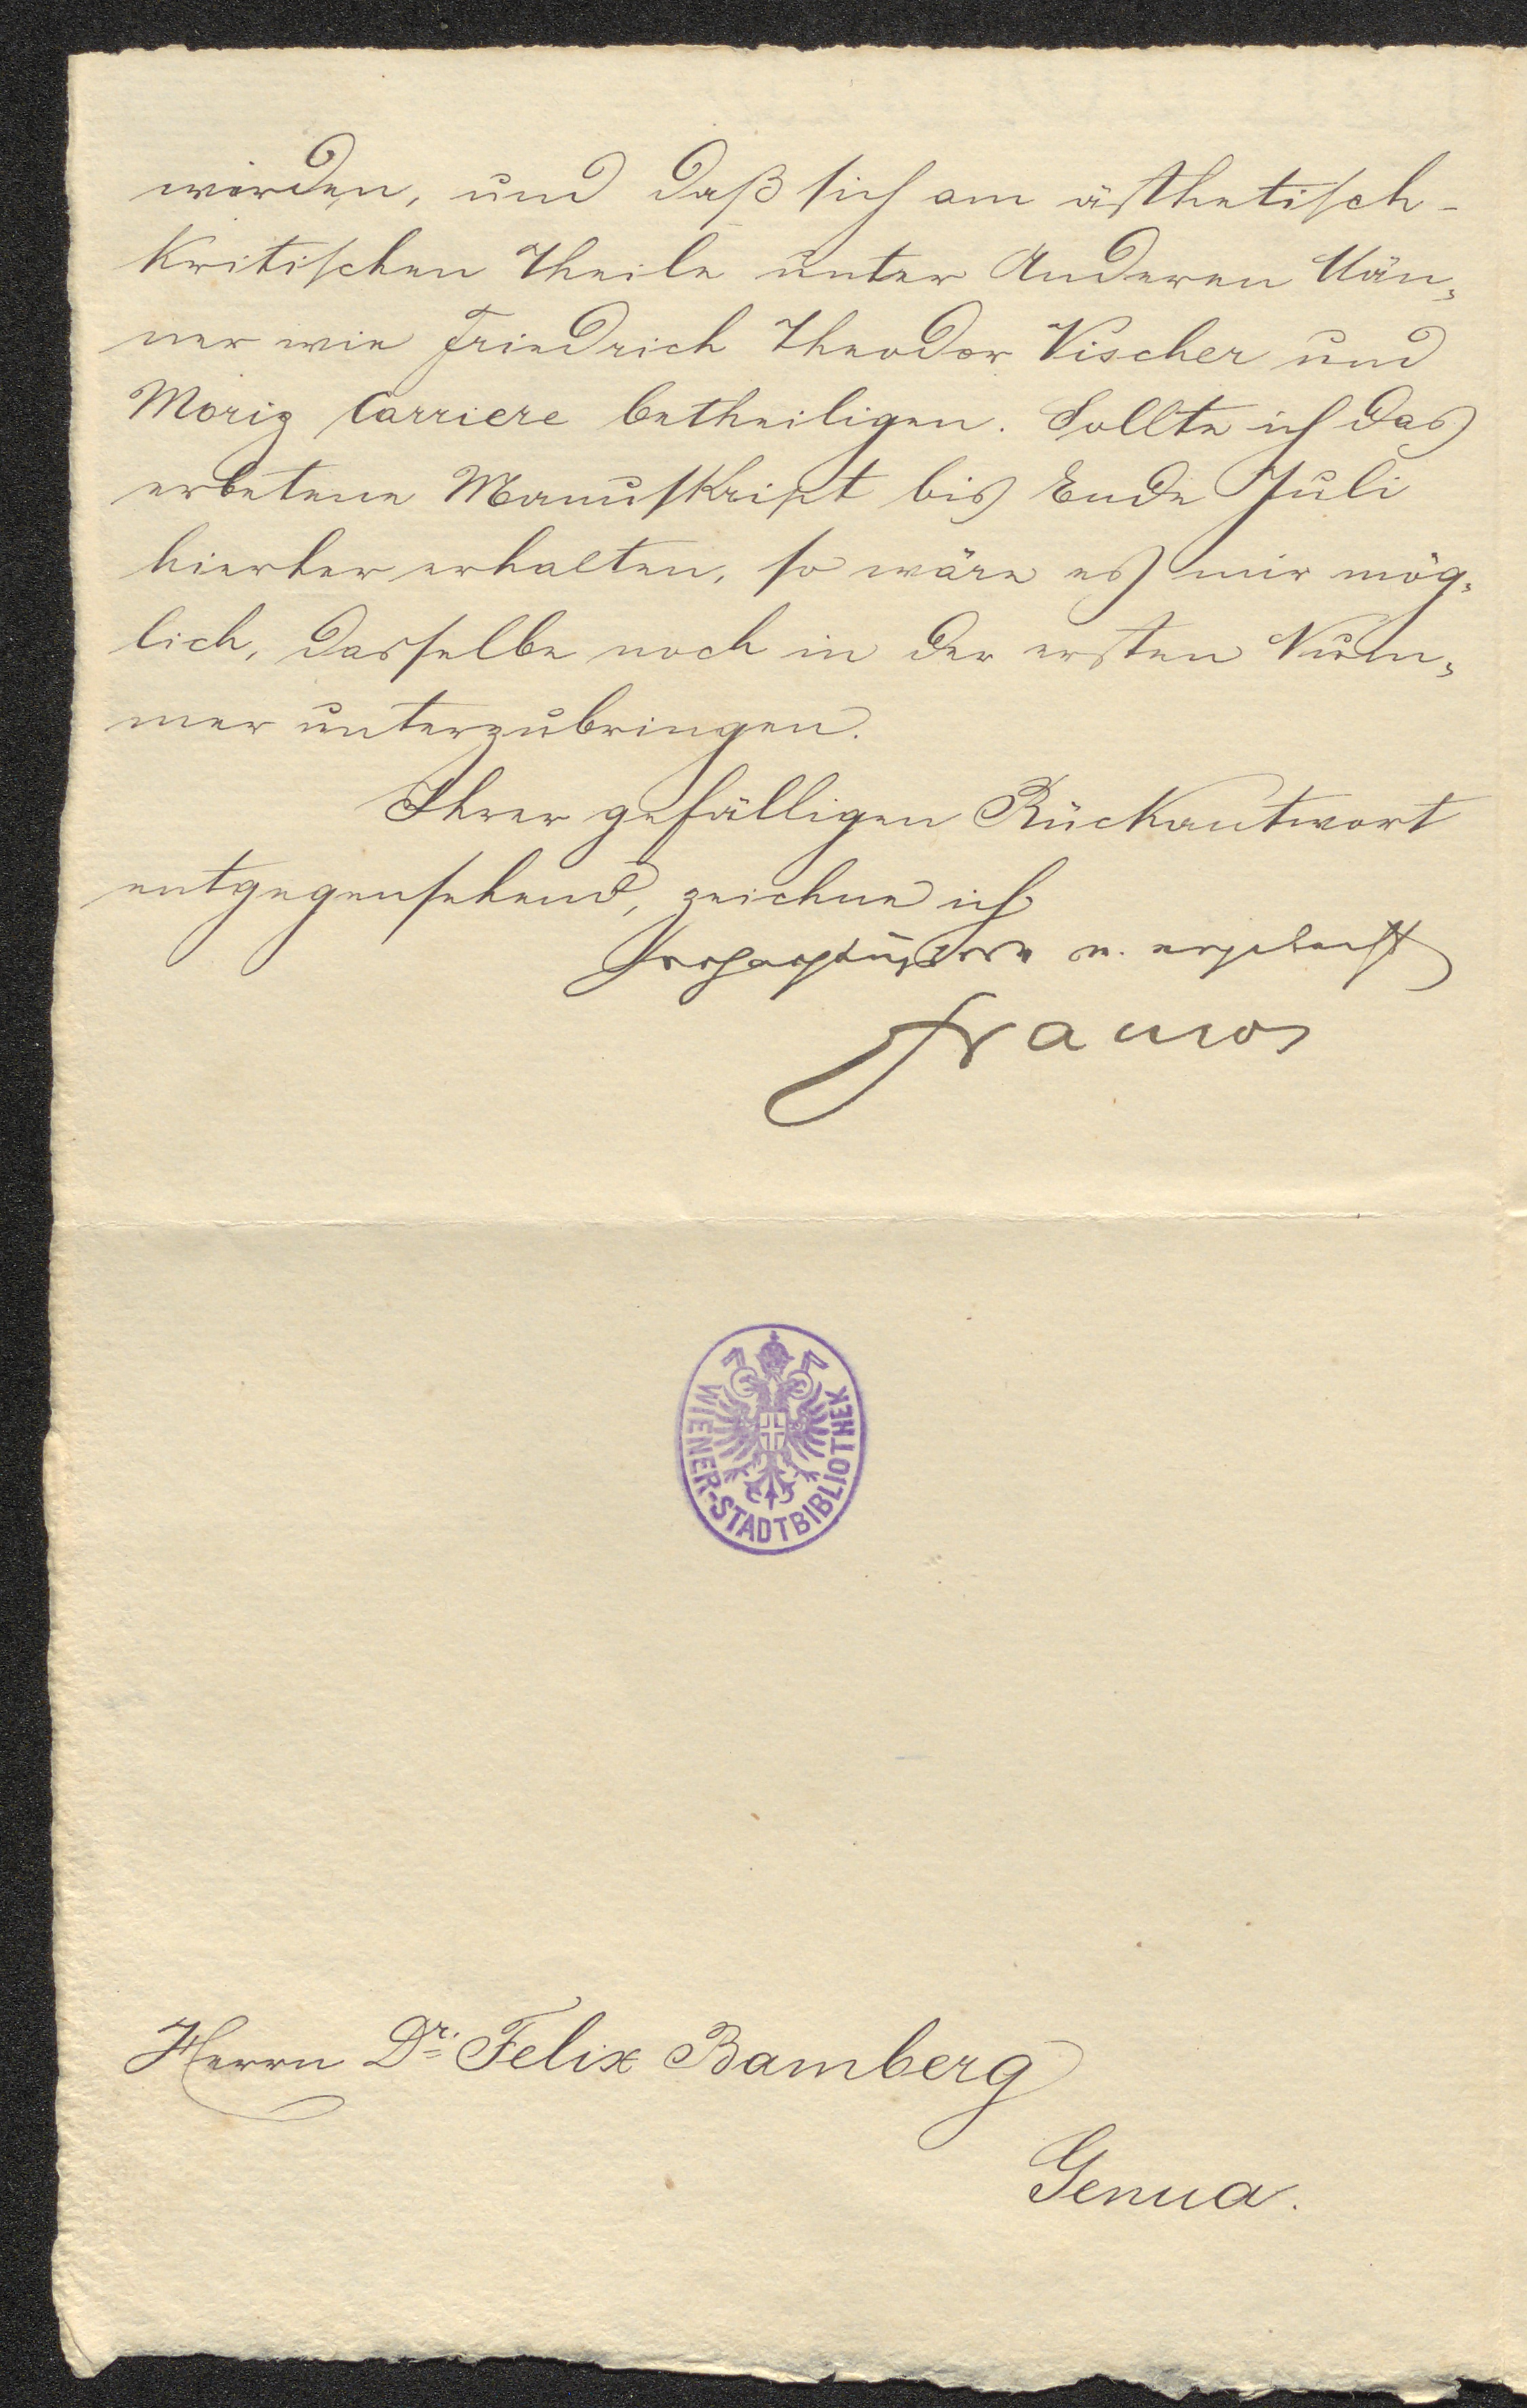 werden, und daß sich am ästhetisch-
kritischen Theile unter Anderen Män-
ner wie Friedrich Theodor Vischer und
Moriz Carriere betheiligen. Sollte ich das
erbetene Manuskript bis Ende Juli
hierher erhalten, so wäre es mir mög-
lich, dasselbe noch in der ersten Num-
mer unterzubringen.
Ihrer gefälligen Rückantwort
entgegensehend, zeichne ich
hochachtungsvoll u. ergebenst
Franzos
WIENER-STADTBIBLIOTHEK
Herrn Dr. Felix Bamberg
Genua.